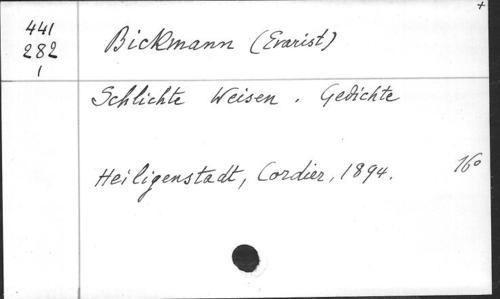 +
441
282
1
Bickmann (Evarist)
Schlichte Weisen. Gedichte
Heiligenstadt, Cordier, 1894. 16°